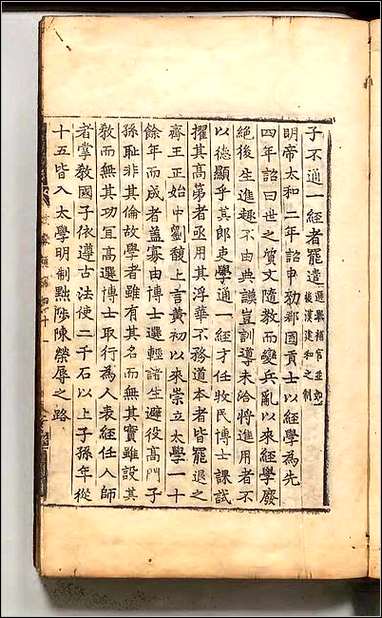 子不通一經者罷遣通樂補官並如後漢建和之制
明帝太和二年詔申勑郡國貢士以經學為先
四年詔曰世之質文隨教而變兵亂以來經學廢
絕後生進趣不由典謨豈訓導未洽將進用者不
以德顯乎其郎吏學通一經才任牧民博士課試
擢其高第者亟用其浮華不務道本者皆罷退之
齊王正始中劉馥上言黃初以來崇立太學二十
餘年而成者蓋寡由博士選輕諸生避役高門子
孫恥非其倫故學者雖有其名而無其實雖設其
教而無其功宜高選博士取行為人表經任人師
者掌教國子依遵古法使二千石以上子孫年從
十五皆入太學明制黜陟陳榮辱之路